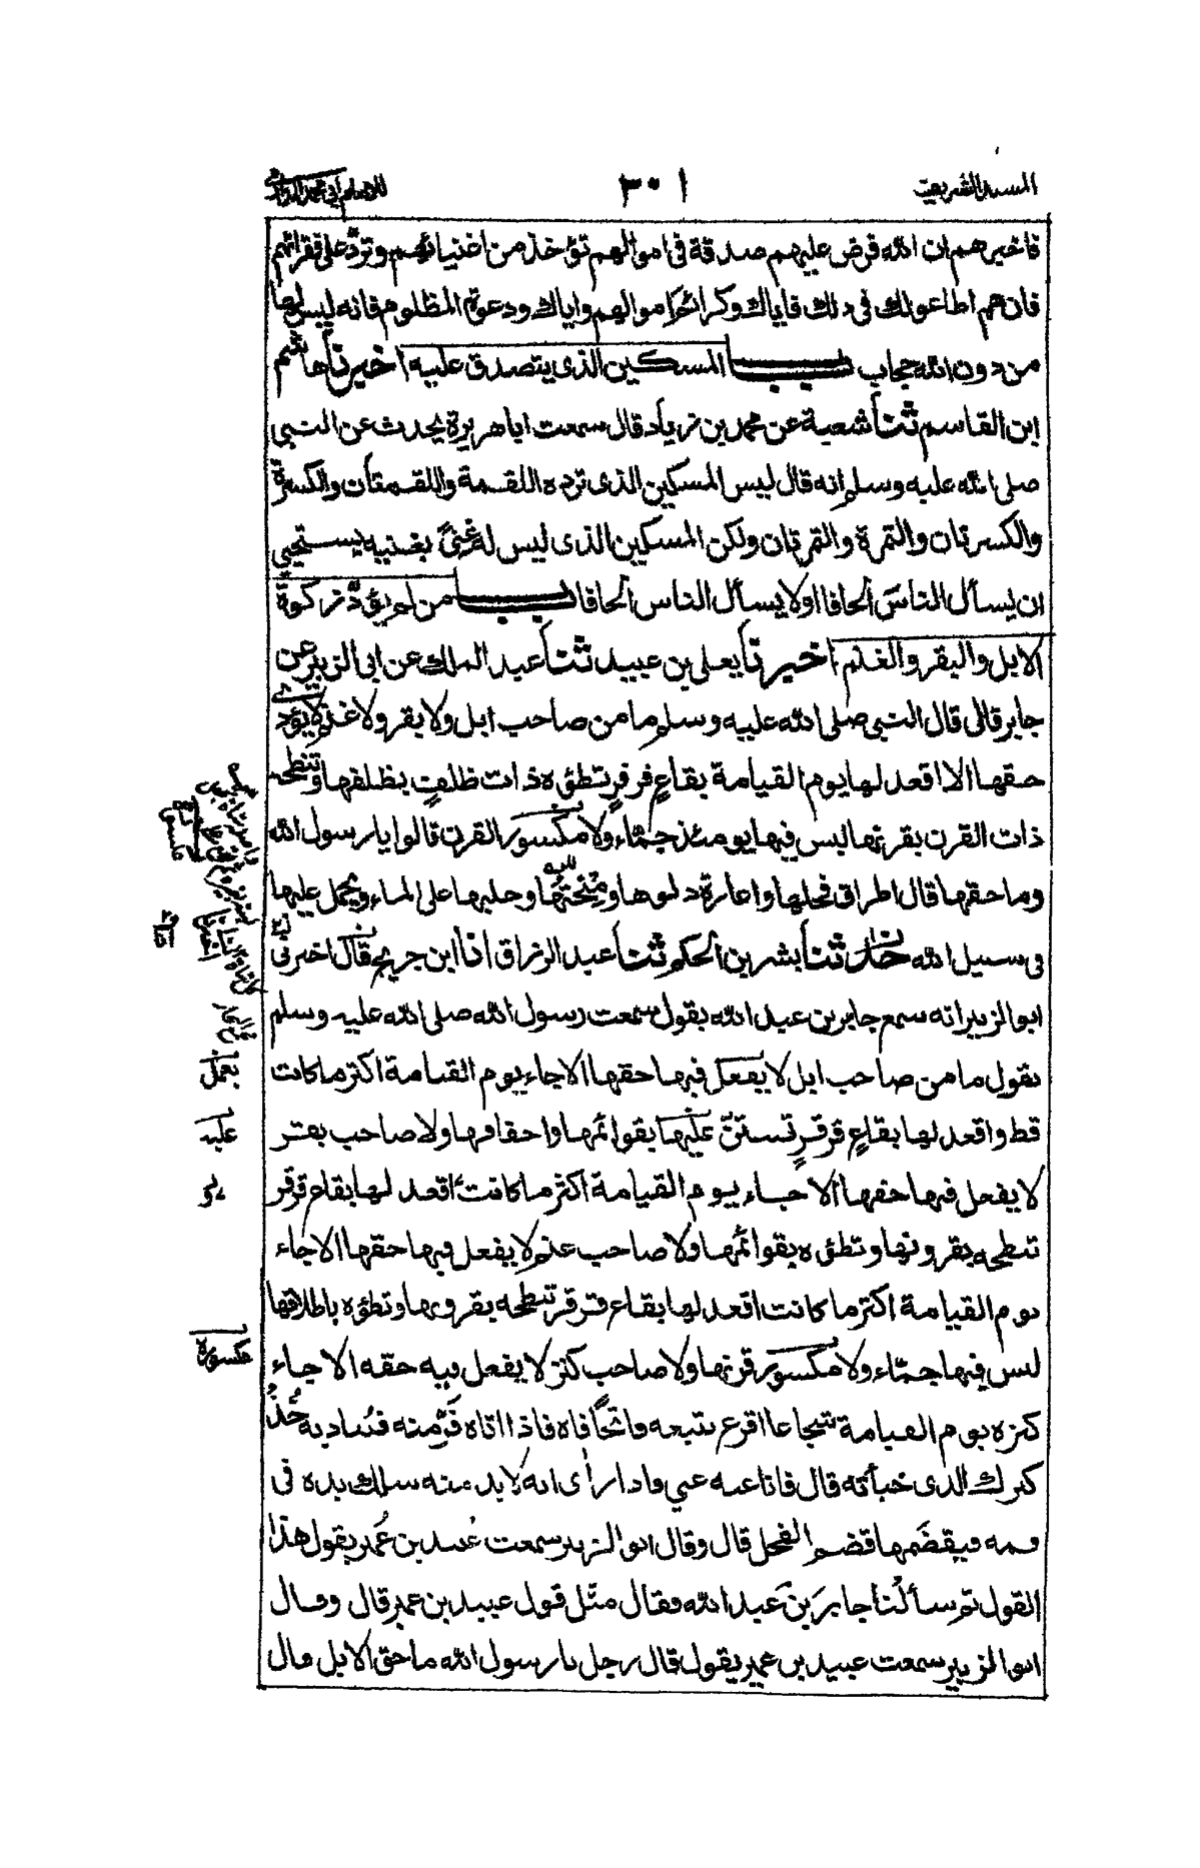 المسند الشريف
٣٠١
للامام ابي محمد الدارمي
فاخبرهم ان الله فرض عليهم صدقة فى اموالهم تؤخذ من اغنيائهم وتردّ على فقرائهم
فان هم اطاعولك فى ذلك فاياك وكرائم اموالهم واياك ودعوة المظلوم فانه ليس لها
من دون الله حجاب باب المسكين الذى يتصدق عليه اخبرنا هاشم
ابن القاسم ثنا شعبة عن محمد بن زياد قال سمعت ابا هريرة يحدث عن النبى
صلى الله عليه وسلم انه قال ليس المسكين الذى ترده اللقمة واللقمتان والكسرة
والكسرتان والتمرة والتمرتان ولكن المسكين الذى ليس له غنىً يغنيه يستحيى
ان يسأل الناسَ الحافا او لا يسأل الناس الحافا باب من لم يؤدّ زكوة
الابل والبقر والغنم اخبرنا يعلى بن عبيد ثنا عبد الملك عن ابى الزبير عن
جابر قال قال النبى صلى الله عليه وسلم ما من صاحب ابل ولا بقر ولا غنم لا يؤدى
حقها الا اقعد لها يوم القيامة بقاعٍ قرقرٍ تطئوه ذات ظلفٍ بظلفها وتنطحه
ذات القرن بقرنها ليس فيها يومئذ جمّاء ولا مكسور القرن قالوا يا رسول الله
وما حقها قال اطراق فحلها واعارة دلوها ومِنْحَتُها وحلبها على الماء ويحمل عليها
فى سبيل الله حدثنا بشر بن الحكم ثنا عبد الرزاق انا ابن جريج قال اخبرنى
ابو الزبير انه سمع جابر بن عبد الله يقول سمعت رسول الله صلى الله عليه وسلم
يقول ما من صاحب ابل لا يفعل فيها حقها الا جاء يوم القيامة اكثر ما كانت
قط واقعد لها بقاعٍ قرقرٍ تستنّ عليها بقوائمها واخفافها ولا صاحب بقر
لا يفعل فيها حقها الا جاء يوم القيامة اكثر ما كانت اقعد لها بقاع قرقر
تنطحه بقرونها وتطئوه بقوائمها ولا صاحب غنم لا يفعل فيها حقها الا جاء
يوم القيامة اكثر ما كانت اقعد لها بقاع قرقر تنطحه بقرونها وتطئوه باظلافها
ليس فيها جمّاء ولا مكسور قرنها ولا صاحب كنز لا يفعل فيه حقه الا جاء
كنزه يوم القيامة شجاعا اقرع يتبعه فاتحًا فاه فاذا اتاه فَرَّ منه فيناديه خُذْ
كنزك الذى خبأته قال فانا عنه غنى فاذا رأى انه لا بد منه سلك يده فى
فمه فيقضَمها قضم الفحل قال وقال ابو الزبير سمعت عُبيد بن عُمير يقول هذا
القول ثم سألْنا جابرَ بنَ عبد الله فقال مثل قول عبيد بن عمير قال وقال
ابو الزبير سمعت عبيد بن عمير يقول قال رجل يا رسول الله ما حق الابل قال
يعمل
عليه
مكسورة